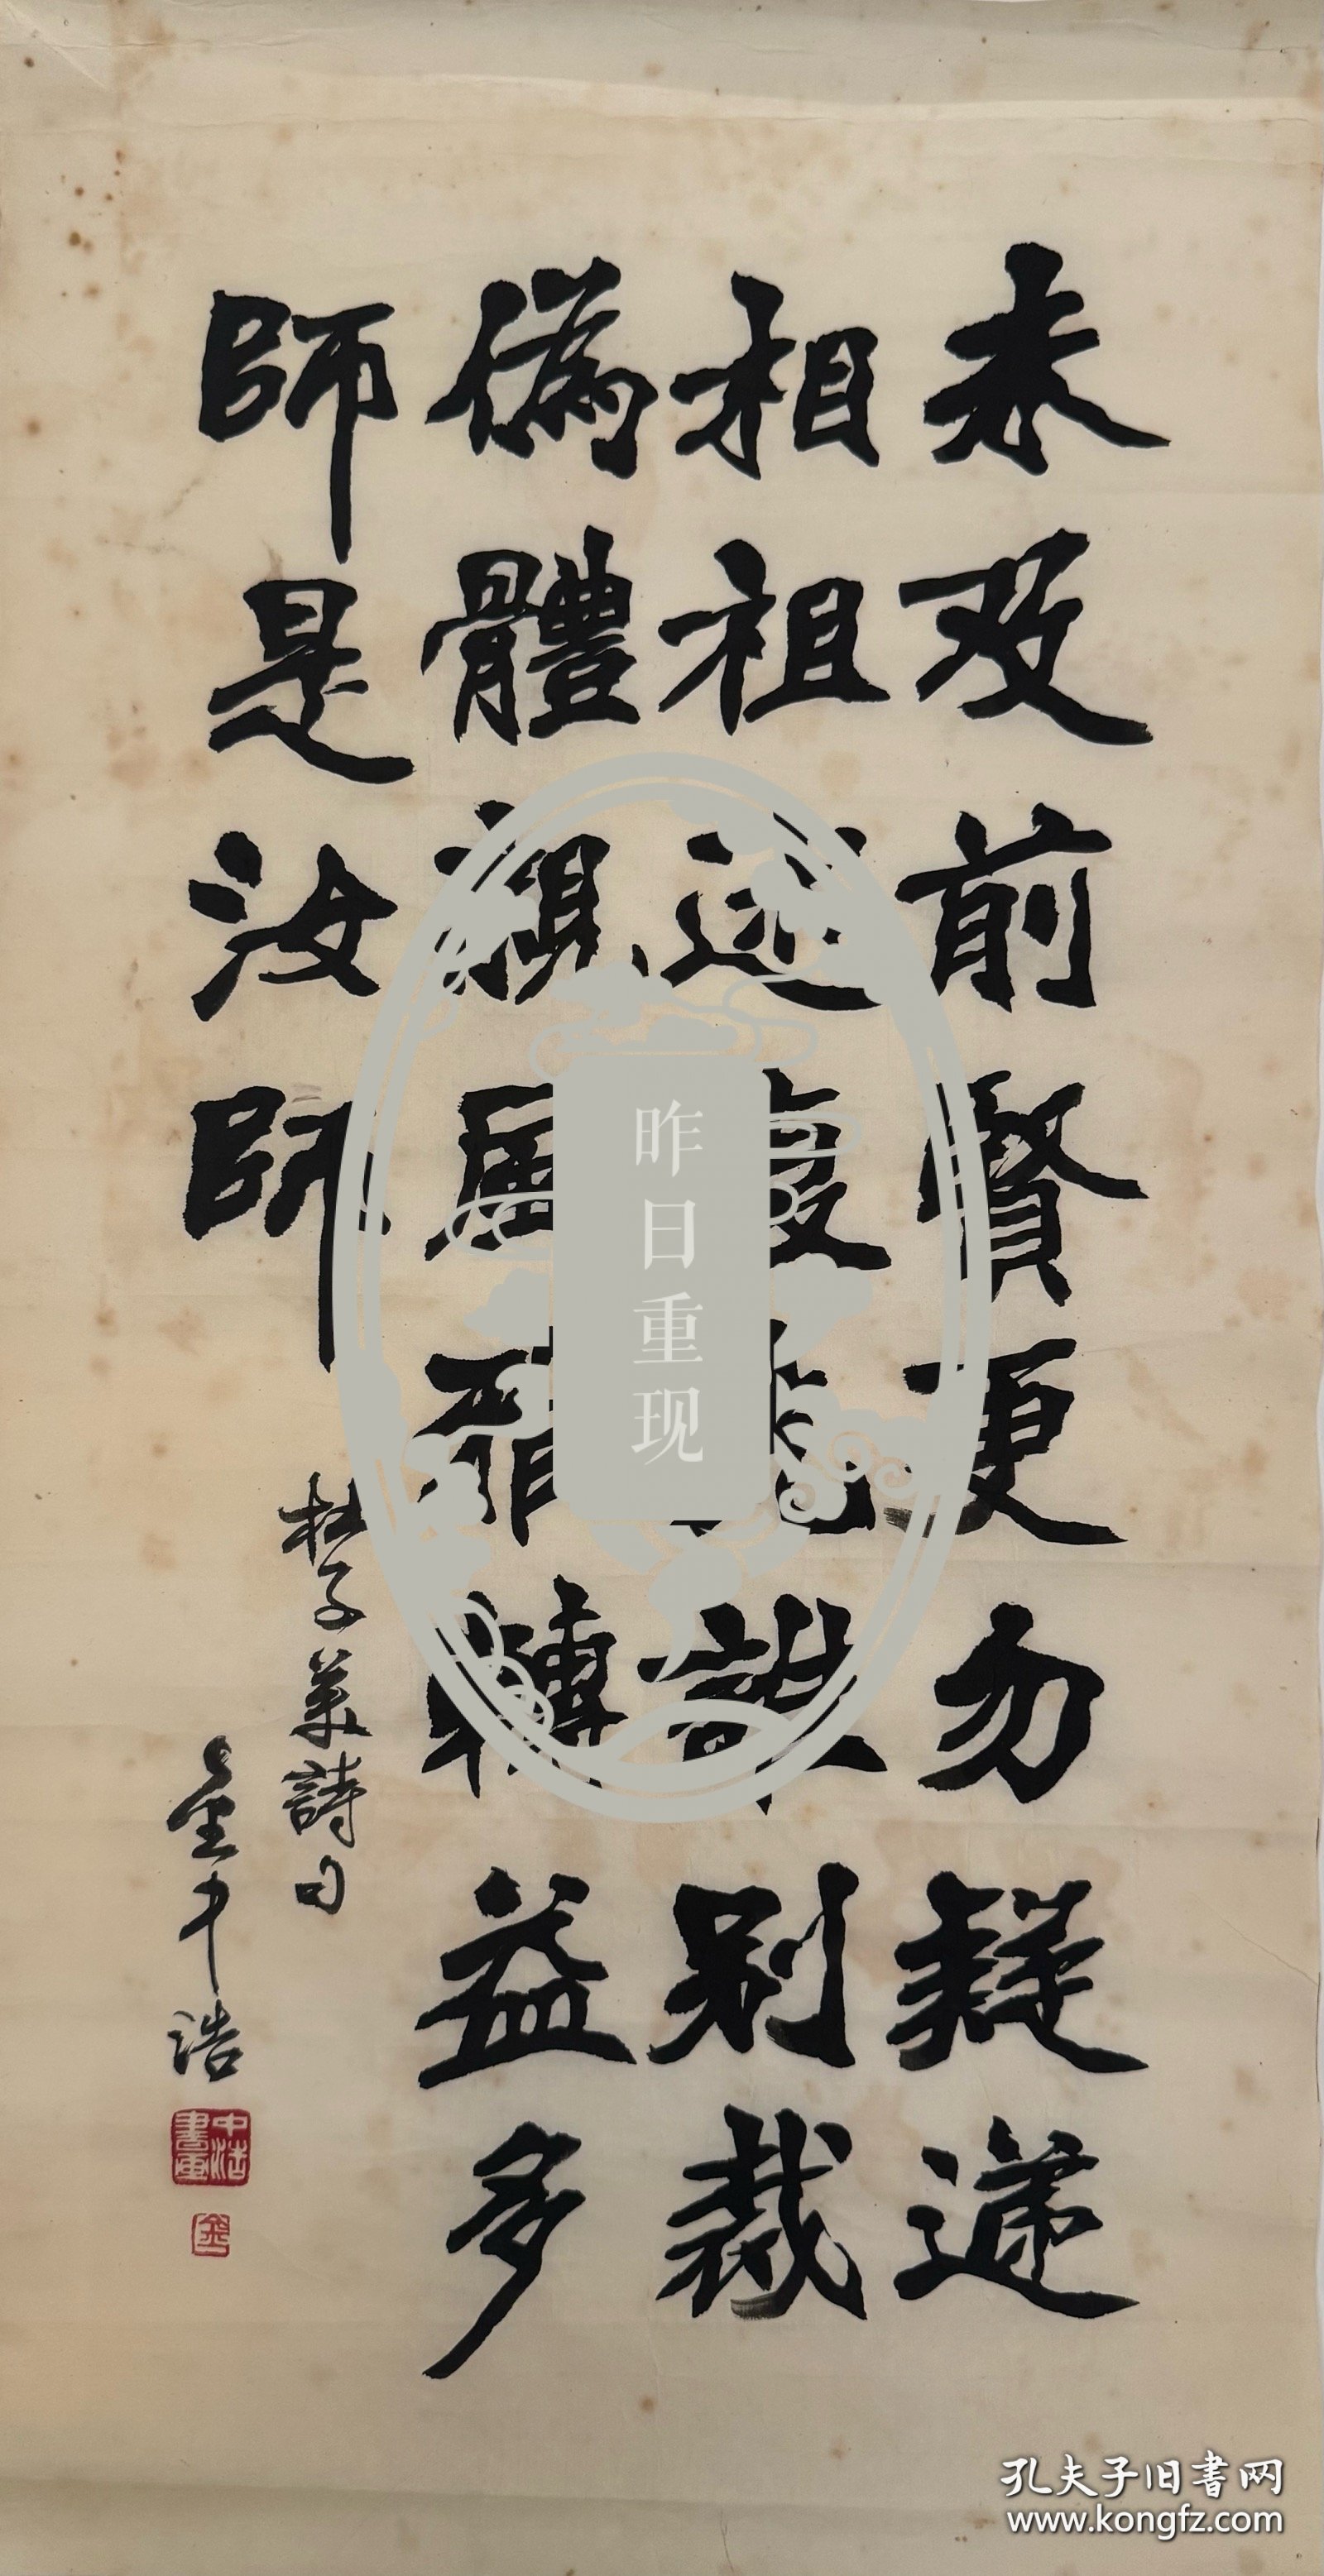 未及前賢更勿疑遞
相祖述復先誰別裁
偽體親風雅轉益多
師是汝師
杜子美詩句
金中浩
中浩書画
金
昨日重现
孔夫子旧书网
www.kongfz.com